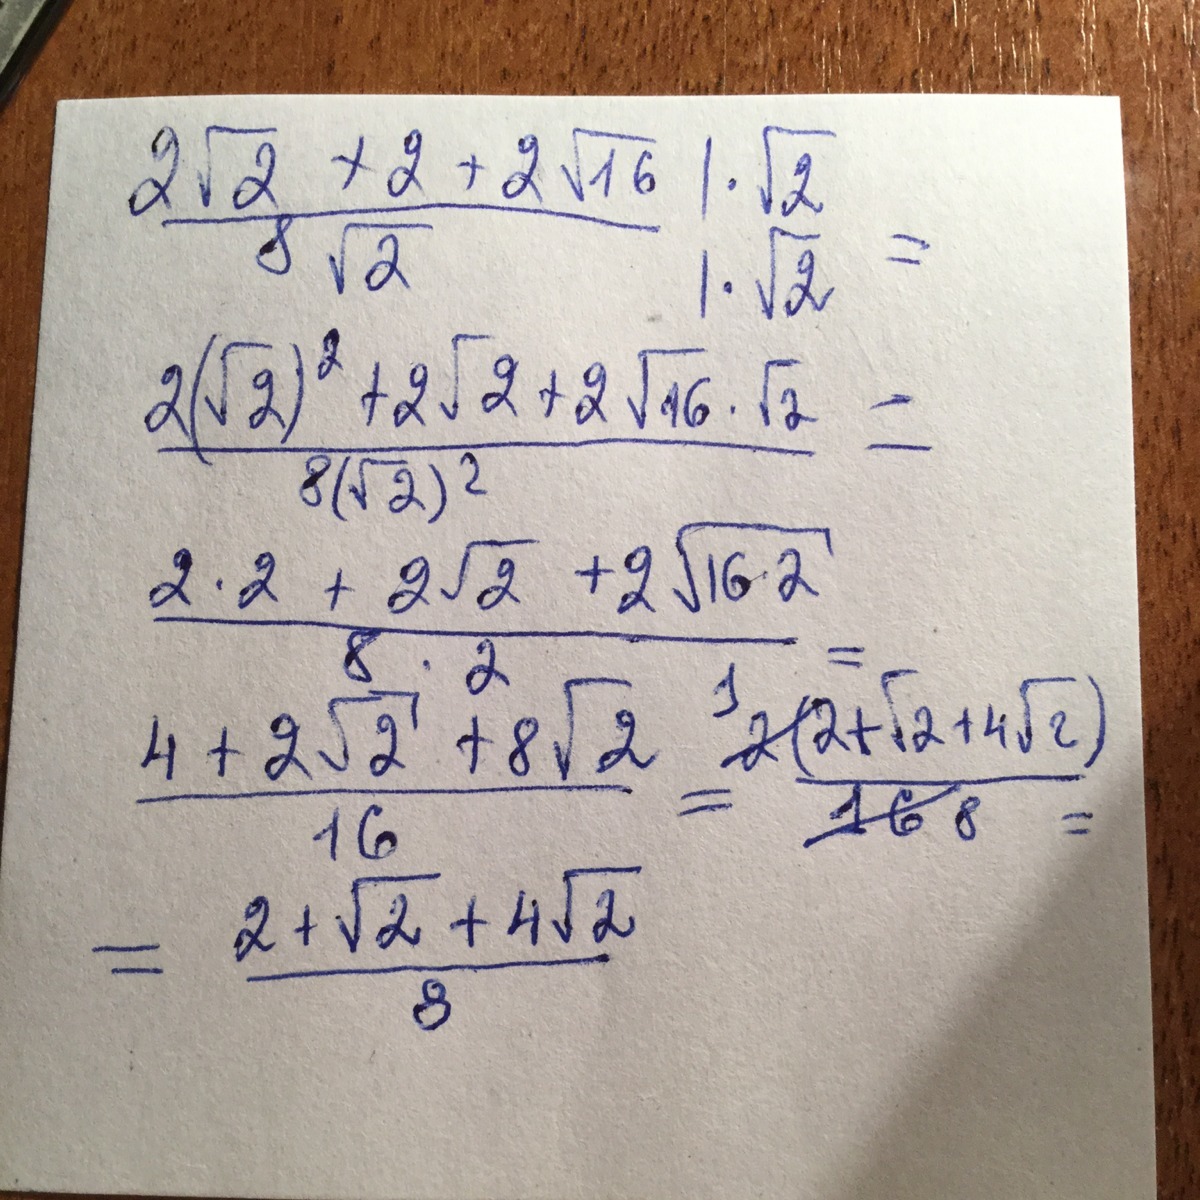 2√2 + 2 + 2√16 | · √2
8√2 | · √2 =
2(√2)² + 2√2 + 2√16 · √2 =
8(√2)²
2 · 2 + 2√2 + 2√16·2
8 · 2 =
4 + 2√2 + 8√2 = 1 2(2+√2+4√2)
16 16 8 =
= 2 + √2 + 4√2
8